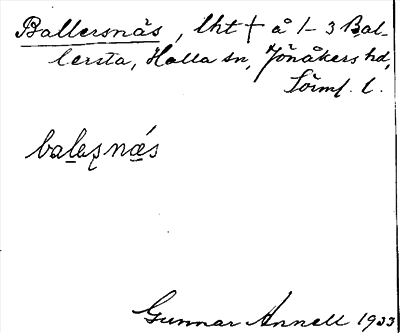 Ballersnäs, lht † å 1–3 Bal-
lersta, Halla sn, Jönåkers hd,
Sörml. l.
balaʂnǽs
Gunnar Annell 1933